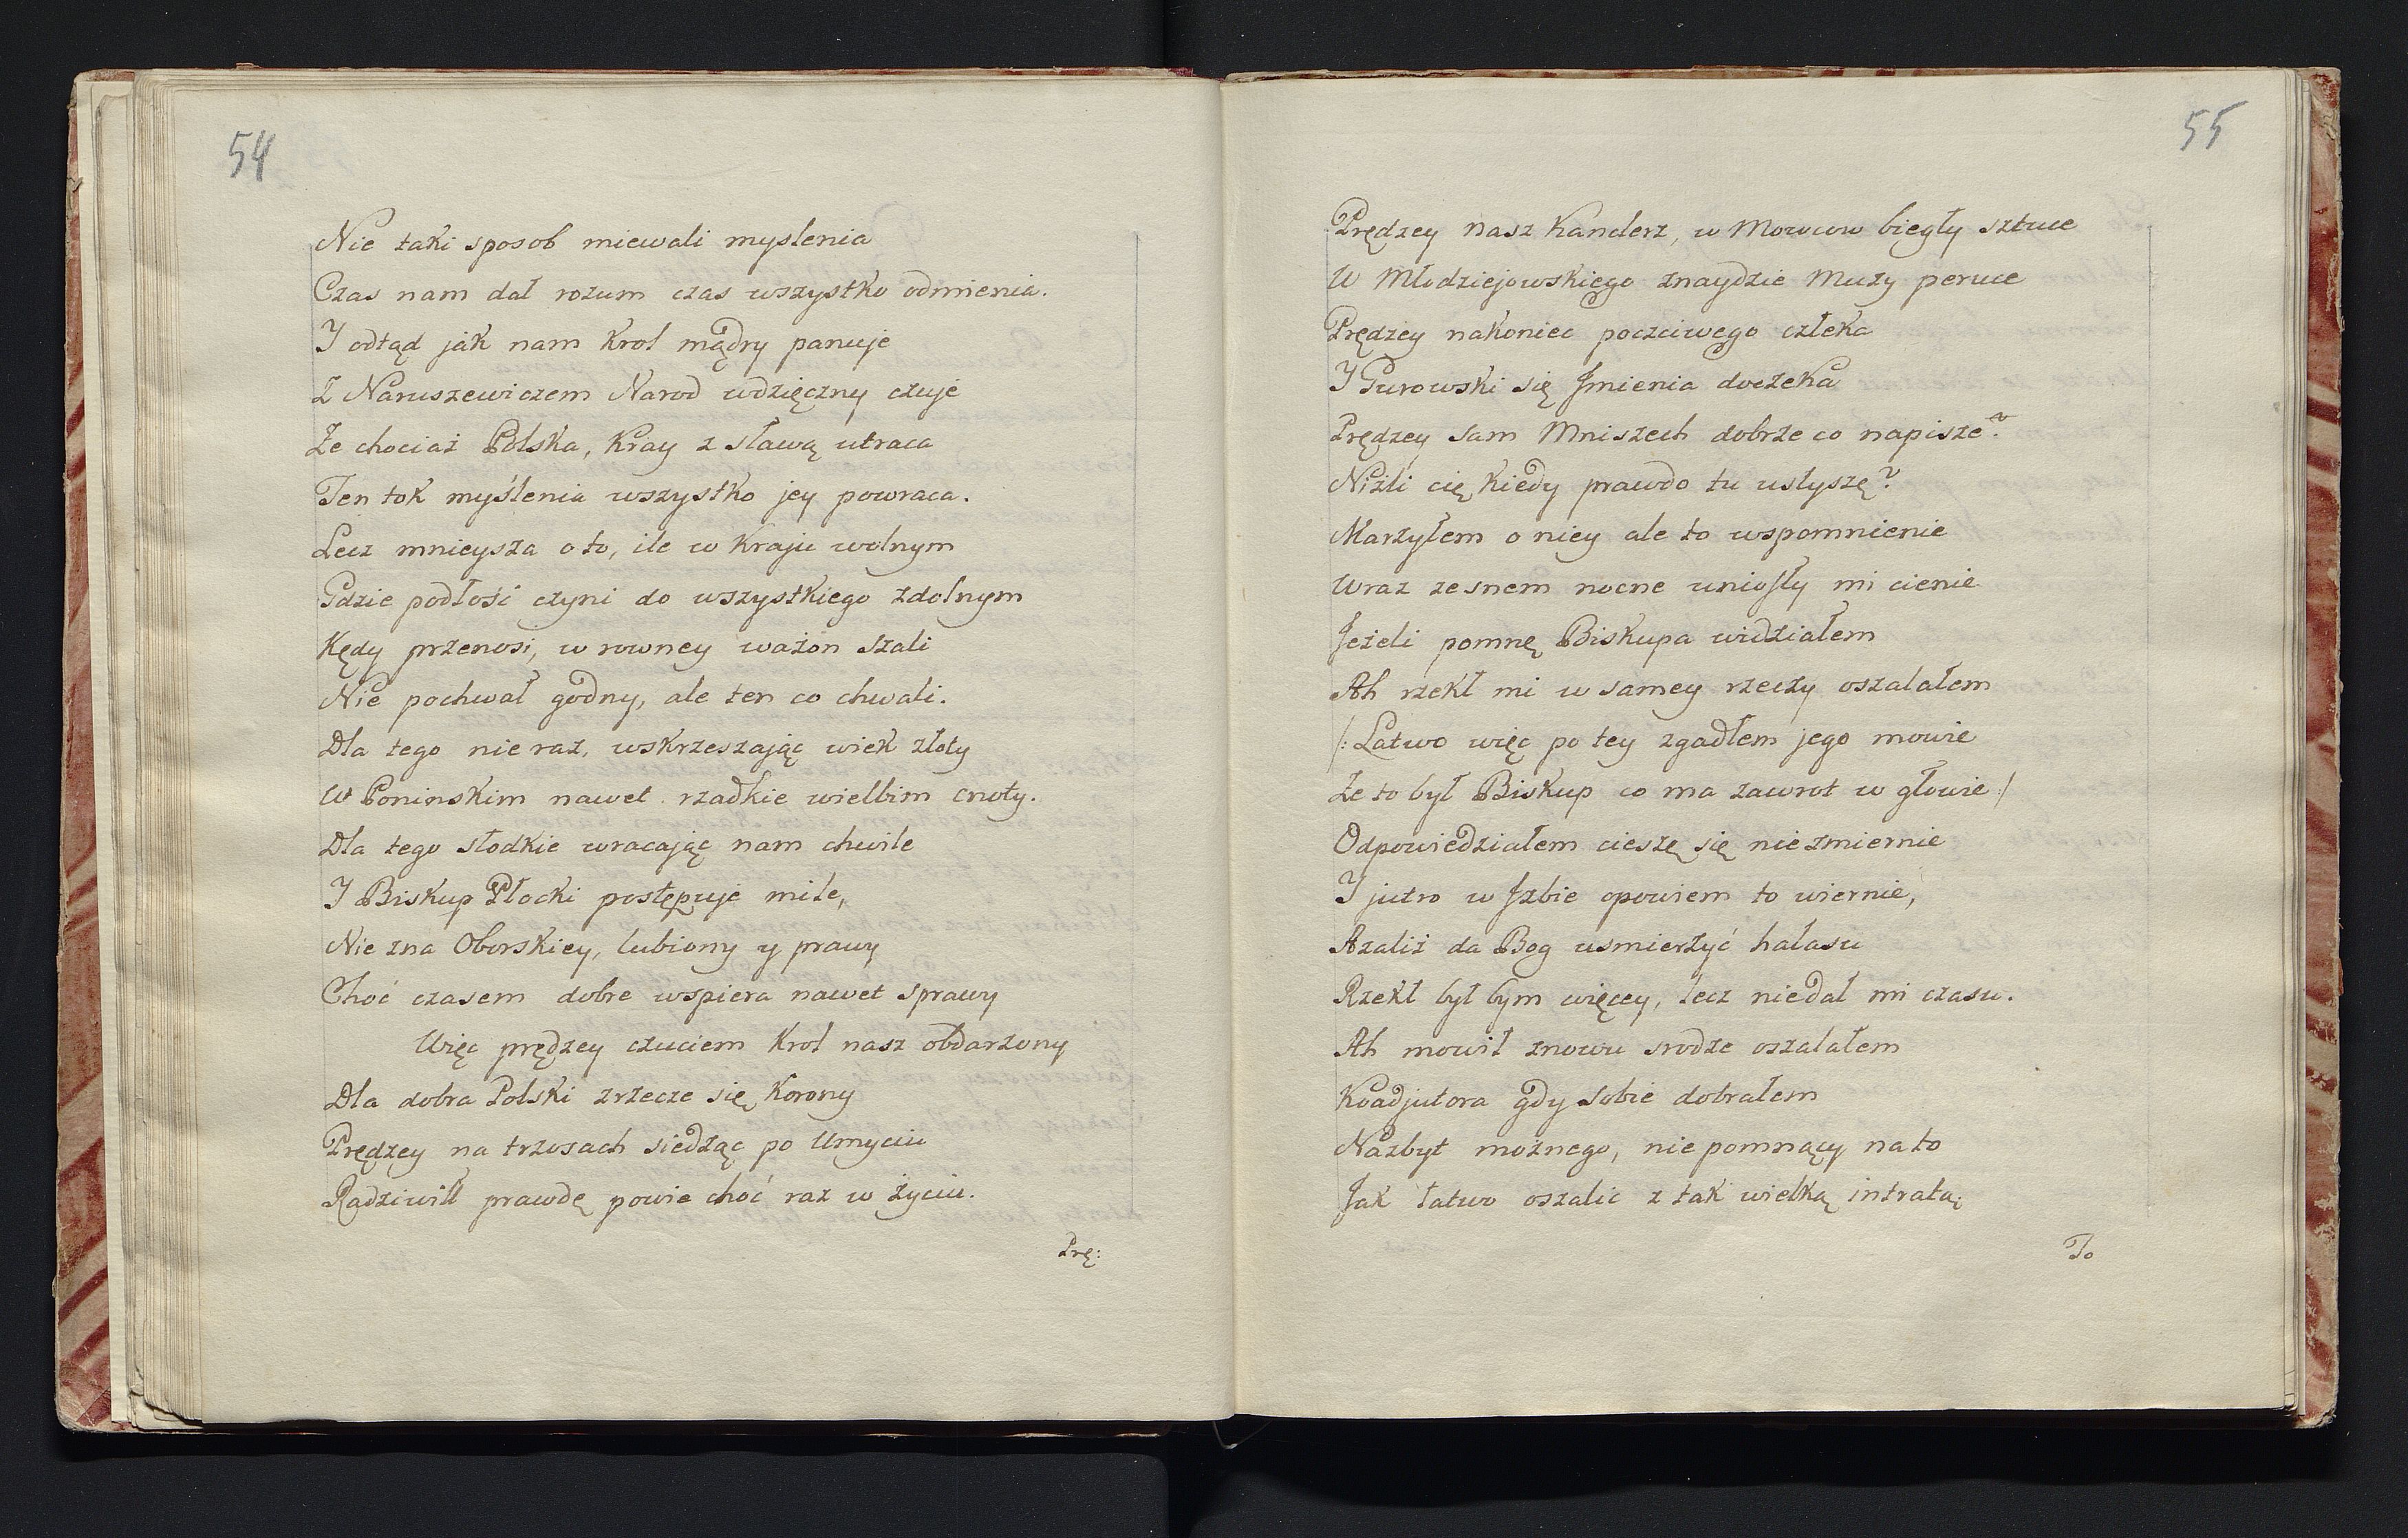 54
Nie taki sposob miewali myslenia
Czas nam dał rozum czas wszystko odmienia.
I odtąd jak nam Krol mądry panuje
Z Naruszewiczem Narod wdzięczny czuje
Że chociaż Polska, Kray z sławą utraca
Ten tok myślenia wszystko jey powraca.
Lecz mnieysza o to, ile w Kraju wolnym
Gdzie podłość czyni do wszystkiego zdolnym
Kędy przenosi, w rowney ważon szali
Nie pochwał godny, ale ten co chwali.
Dla tego nie raz, wskrzeszając wiek złoty
W Poninskim nawet rzadkie wielbim cnoty.
Dla tego słodkie wracając nam chwile
I Biskup Płocki postępuje mile,
Nie zna Oborskiey, lubiony y prawy
Choć czasem dobre wspiera nawet sprawy
Więc prędzey czuciem Krol nasz obdarzony
Dla dobra Polski zrzecze się Korony
Prędzey na trzosach siedząc po Umyciu
Radziwiłł prawdę powie choć raz w życiu.
Prę:
55
Prędzey nasz Kanclerz, w Mowcow biegły sztuce
W Młodziejowskiego znaydzie Muzy peruce
Prędzey nakoniec poczciwego człeka
I Gurowski się Imienia doczeka
Prędzey sam Mniszech dobrze co napisze?
Niżli cię kiedy prawdo tu usłyszę?
Marzyłem o niey ale to wspomnienie
Wraz ze snem nocne uniosły mi cienie
Jeżeli pomnę Biskupa widziałem
Ah rzekł mi w samey rzeczy oszalałem
/: Latwo więc po tey zgadłem jego mowie
Że to był Biskup co ma zawrot w głowie :/
Odpowiedziałem cieszę się niezmiernie
I jutro w Izbie opowiem to wiernie,
Azaliż da Bog usmierzyć hałasu
Rzekł był bym więcey, lecz niedał mi czasu.
Ah mowił znowu srodze oszalałem
Koadjutora gdy sobie dobrałem
Nazbyt możnego, nie pomnący na to
Jak łatwo oszalic z tak wielką intratą;
To